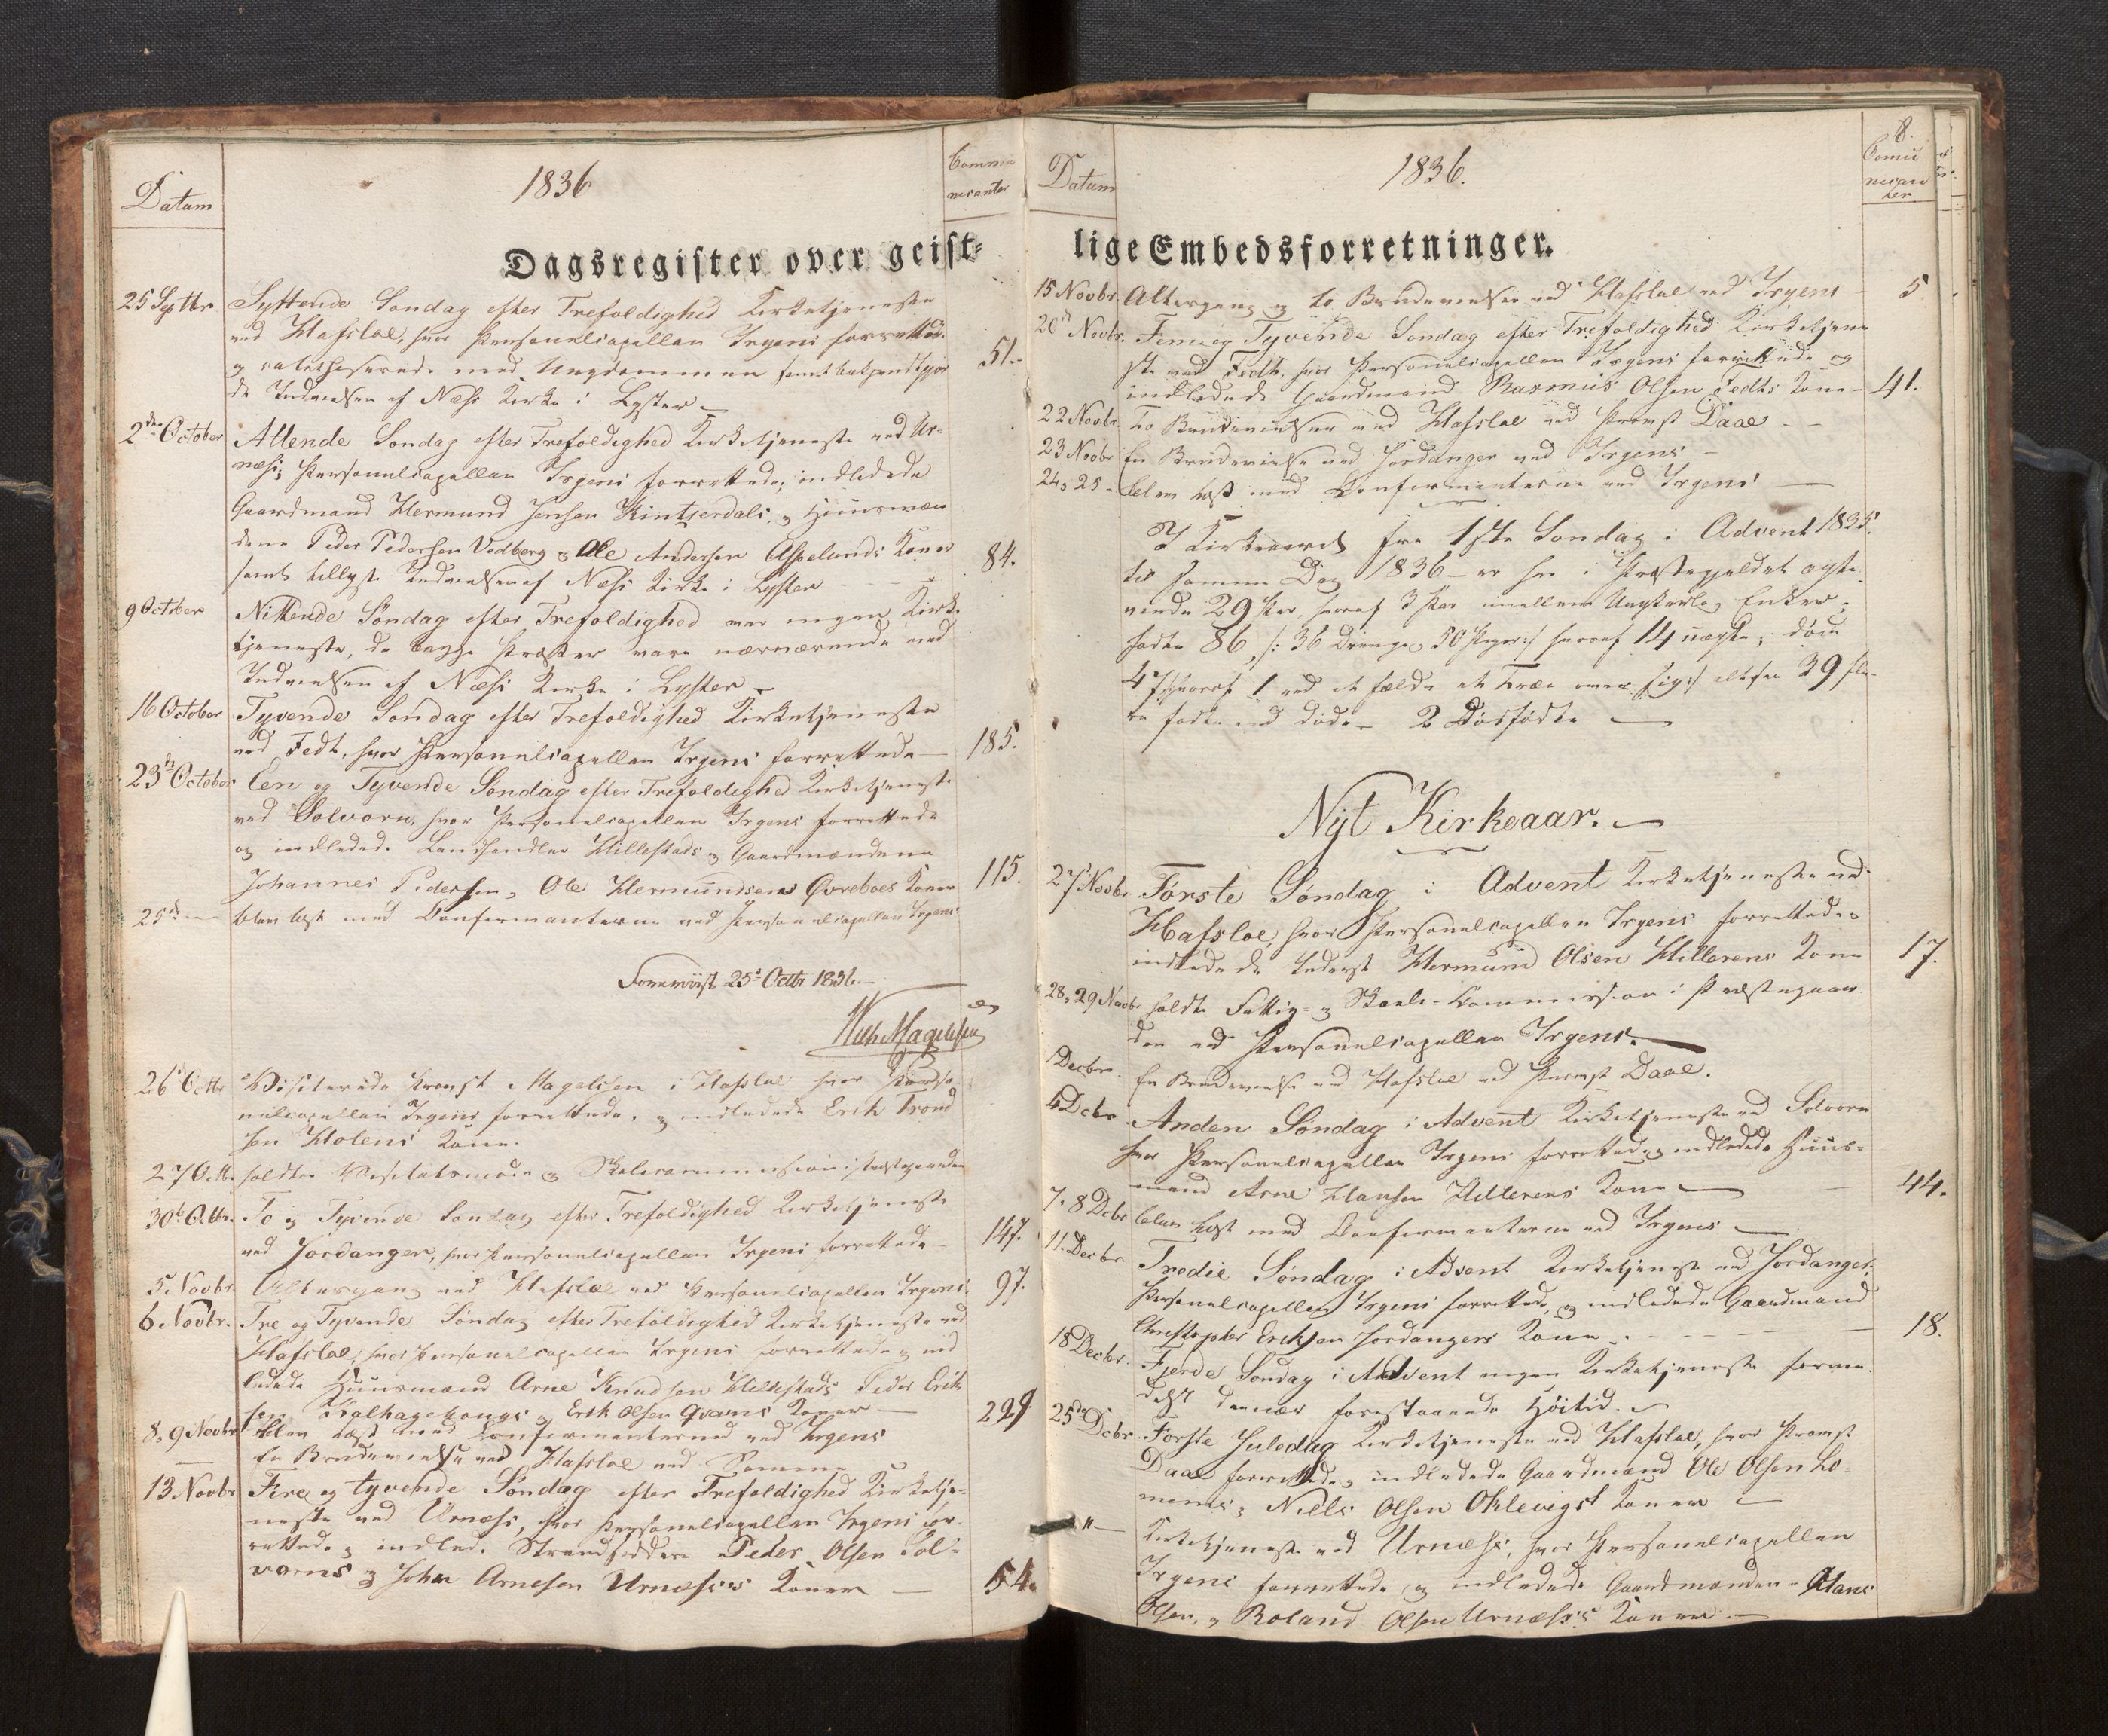 Datum
1836
Commu
nicanter
Dagsregister over geist-
25 Septbr
Syttende Søndag efter Trefoldighed Kirketjeneste
ved Hafsloe, hvor Personelcapellan Irgens forrettede
og catechiserede med Ungdommen samt bekjendtgjor
51.
de Indvielsen af Næss Kirke i Lyster
2den October
Attende Søndag efter Trefoldighed Kirketjeneste ved Ur-
næs; Personelcapellan Irgens forrettede, indledede
Gaardmand Hermund Jensen Kintserdals, og Huusmæn
dene Peder Pedersen Vedberg og Ole Andersen Asselands Koner
84.
samt tillyste Indvielsen af Næss Kirke i Lyster
9 October
Nittende Søndag efter Trefoldighed var ingen Kirke
tjeneste, da begge Præster vare nærværende ved
Indvielsen af Næss Kirke i Lyster
16 October
Tyvende Søndag efter Trefoldighed Kirketjeneste
ved Fedt, hvor Personelcapellan Irgens forrettede
185.
23d October
Een og Tyvende Søndag efter Trefoldighed Kirketjeneste
ved Solvorn, hvor Personelcapellan Irgens forrettede
og indledede Landhandler Hillestads og Gaardmændene
Johannes Pedersen og Ole Hermundsens Øvreboes Koner
115.
25de
blev læst med Confirmanterne ved Personelcapellan Irgens
Foreviist 25d Octbr 1836.
Magelssen
26 Octbr
Visiterede Provst Magelssen i Hafsloe hvor Perso
nelcapellan Irgens forrettede, og indledede Erik Trond
sen Molens Kone.
27 Octbr
holdtes Visitatsmøde og Skolecommission i Præstegaarden
30te Octbr.
To og Tyvende Søndag efter Trefoldighed Kirketjeneste
ved Jordanger, hvor Personelcapellan Irgens forrettede
147.
5 Novbr.
Altergang ved Hafsloe ved Personelcapellan Irgens
97.
6 Novbr.
Tre og Tyvende Søndag efter Trefoldighed Kirketjeneste ved
Hafsloe, hvor Personelcapellan Irgens forrettede og ind
ledede Huusmænd Arne Knudsen Hillestads Peder Erik
sen og Erik Olsen Qvams Koner
229
8, 9 Novbr
blev læst med Confirmanterne ved Irgens
En Brudevielse ved Hafsloe ved Samme
13 Novbr
Fire og tyvende Søndag efter Trefoldighed Kirketje-
neste ved Urnæs, hvor Personelcapellan Irgens for-
rettede og indled. Strandsiddere Peder Olsen Sol-
vorns og John Arnesen Urnæss's Koner
54.
Datum
1836.
8.
Comu
nican
ter
lige Embedsforretninger.
15 Novbr.
Altergang og to Brudevielser ved Hafsloe ved Irgens
5.
20d Novbr.
Fem og Tyvende Søndag efter Trefoldighed Kirketjene
ste ved Fedt, hvor Personelcapellan Irgens forrettede og
indledede Gaardmand Rasmus Olsen Fedts Kone
41.
22 Novbr.
To Brudevielser ved Hafsloe ved Provst Daae
23 Novbr
En Brudevielse ved Jordanger ved Irgens
24, 25
blev læst med Confirmanterne ved Irgens
I Kirkeaaret fra 1ste Søndag i Advent 1835
til samme Dag 1836 er her i Præstegjeldet ægte
viede 29 Par, hvoraf 3 Par imellem Ungkarle og Enker;
fødte 86, /: 36 Drenge og 50 Piger :/ hvoraf 14 uægte; døde
47 /: hvoraf 1 ved at fælde et Træe over sig :/ altsaa 39 fle-
re fødte end døde. 2 Dødfødte
Nyt Kirkeaar.
27 Novbr
Første Søndag i Advent Kirketjeneste ved
Hafsloe, hvor Personelcapellan Irgens forrettede og
indledede Inderst Hermund Olsen Hillerens Kone
17.
28, 29 Novbr
holdte Fattig- og Skole-Commission i Præstegaar
den ved Personelcapellan Irgens.
1 Decbr.
En Brudevielse ved Hafsloe ved Provst Daae.
4 Decbr
Anden Søndag i Advent Kirketjeneste ved Solvorn
hvor Personelcapellan Irgens forrettede og indledede Huus-
mand Arne Hansen Hillerens Kone
44.
7. 8 Decbr
blev læst med Confirmanterne ved Irgens
11. Decbr
Tredie Søndag i Advent Kirketjeneste ved Jordanger,
Personelcapellan Irgens forrettede, og indledede Gaardmand
Christopher Eriksen Jordangers Kone
18.
18 Decbr.
Fjerde Søndag i Advent ingen Kirketjeneste forme-
delst den nær forestaaende Høitid.
25de Decbr.
Første Juledag Kirketjeneste ved Hafsloe, hvor Provst
Daae forrettede, indledede Gaardmænd Ole Olsen Lo-
mens og Niels Olsen Oklevigs Koner
"
Kirketjeneste ved Urnæs, hvor Personelcapellan
Irgens forrettede og indledede Gaardmændene Hans
Olsen, og Roland Olsen Urnæss's Koner